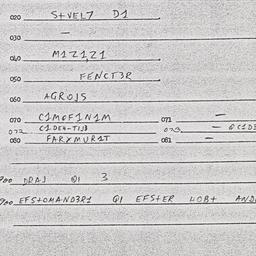 020 S+VEL7 D1
030 —
040 M1Z1,Z1
050 FENCT3R
060 AGROJS
070 C1M0F1N1M 071 —
072 C1DEH-TIJB 073 — QC1D3
080 FARXMUR1T 081 —
900 DRAJ Q1 3
900 EFS+OMAND3R1 Q1 EFS+ER HOB+ AND